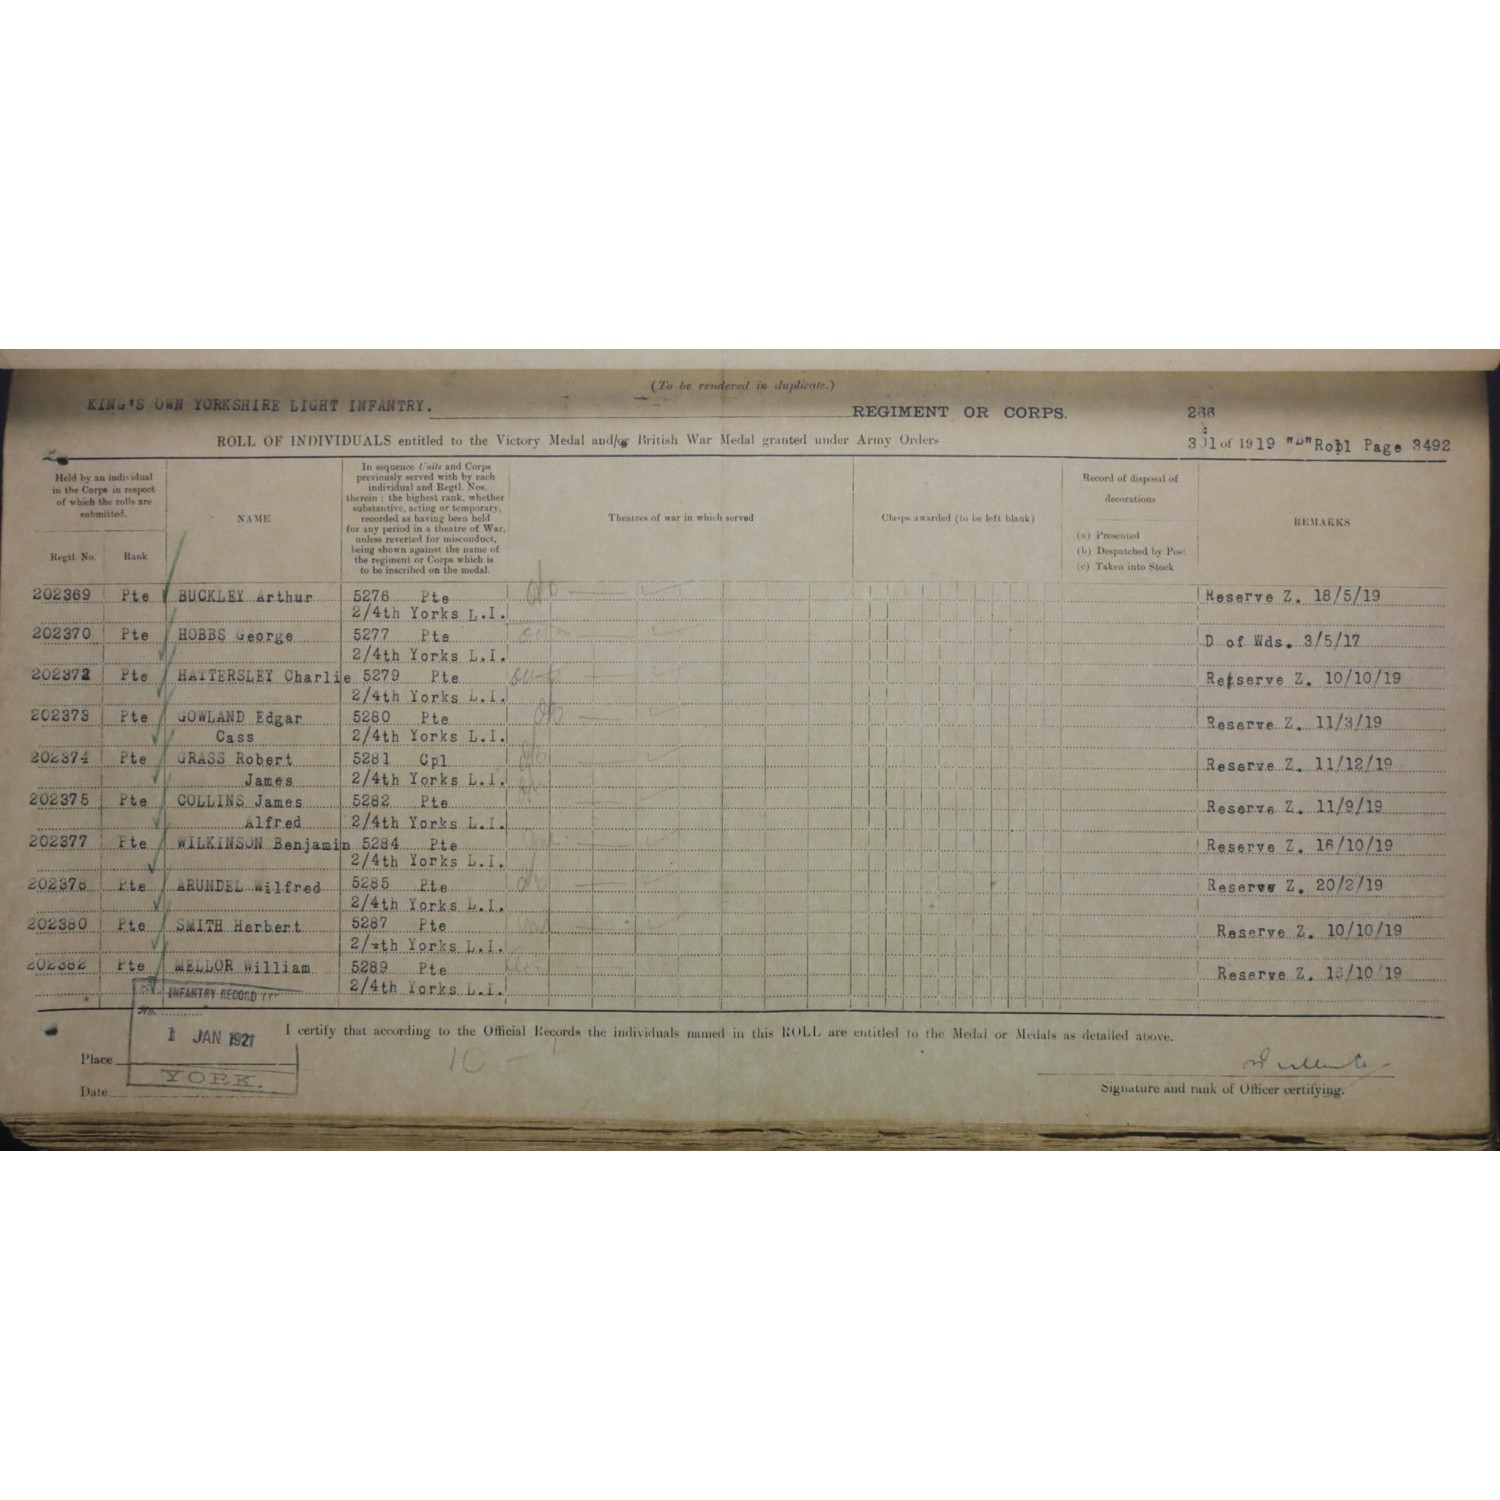 (To be rendered in duplicate.)
KING'S OWN YORKSHIRE LIGHT INFANTRY. REGIMENT OR CORPS. 266
ROLL OF INDIVIDUALS entitled to the Victory Medal and/or British War Medal granted under Army Orders 301 of 1919 "B" Roll Page 3492
Held by an individual in the Corps in respect of which the rolls are submitted.
Regtl. No. Rank
NAME
In sequence Units and Corps
previously served with by each
individual and Regtl. Nos.
therein; the highest rank, whether
substantive, acting or temporary,
recorded as having been held
for any period in a theatre of War,
unless reverted for misconduct,
being shown against the name of
the regiment or Corps which is
to be inscribed on the medal.
Theatres of war in which served
Clasps awarded (to be left blank)
Record of disposal of
decorations
(a) Presented
(b) Despatched by Post
(c) Taken into Stock
REMARKS
202369 Pte BUCKLEY Arthur 5276 Pte Reserve Z. 18/5/19
2/4th Yorks L.I.
202370 Pte HOBBS George 5277 Pte D of Wds. 3/5/17
2/4th Yorks L.I.
202372 Pte HATTERSLEY Charlie 5279 Pte Reserve Z. 10/10/19
2/4th Yorks L.I.
202373 Pte GOWLAND Edgar 5280 Pte Reserve Z. 11/3/19
Cass 2/4th Yorks L.I.
202374 Pte GRASS Robert 5281 Cpl Reserve Z. 11/12/19
James 2/4th Yorks L.I.
202375 Pte COLLINS James 5282 Pte Reserve Z. 11/9/19
Alfred 2/4th Yorks L.I.
202377 Pte WILKINSON Benjamin 5284 Pte Reserve Z. 16/10/19
2/4th Yorks L.I.
202378 Pte ARUNDEL Wilfred 5285 Pte Reserve Z. 20/2/19
2/4th Yorks L.I.
202380 Pte SMITH Herbert 5287 Pte Reserve Z. 10/10/19
2/4th Yorks L.I.
202382 Pte MELLOR William 5289 Pte Reserve Z. 13/10/19
2/4th Yorks L.I.
INFANTRY RECORD
No.
1 JAN 1921
YORK.
I certify that according to the Official Records the individuals named in this ROLL are entitled to the Medal or Medals as detailed above.
10 -
Place
Date
Signature and rank of Officer certifying.